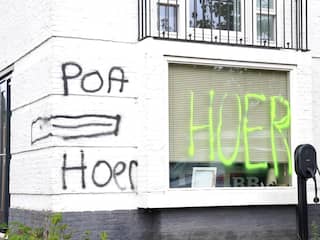 POA
Hoer
HOER